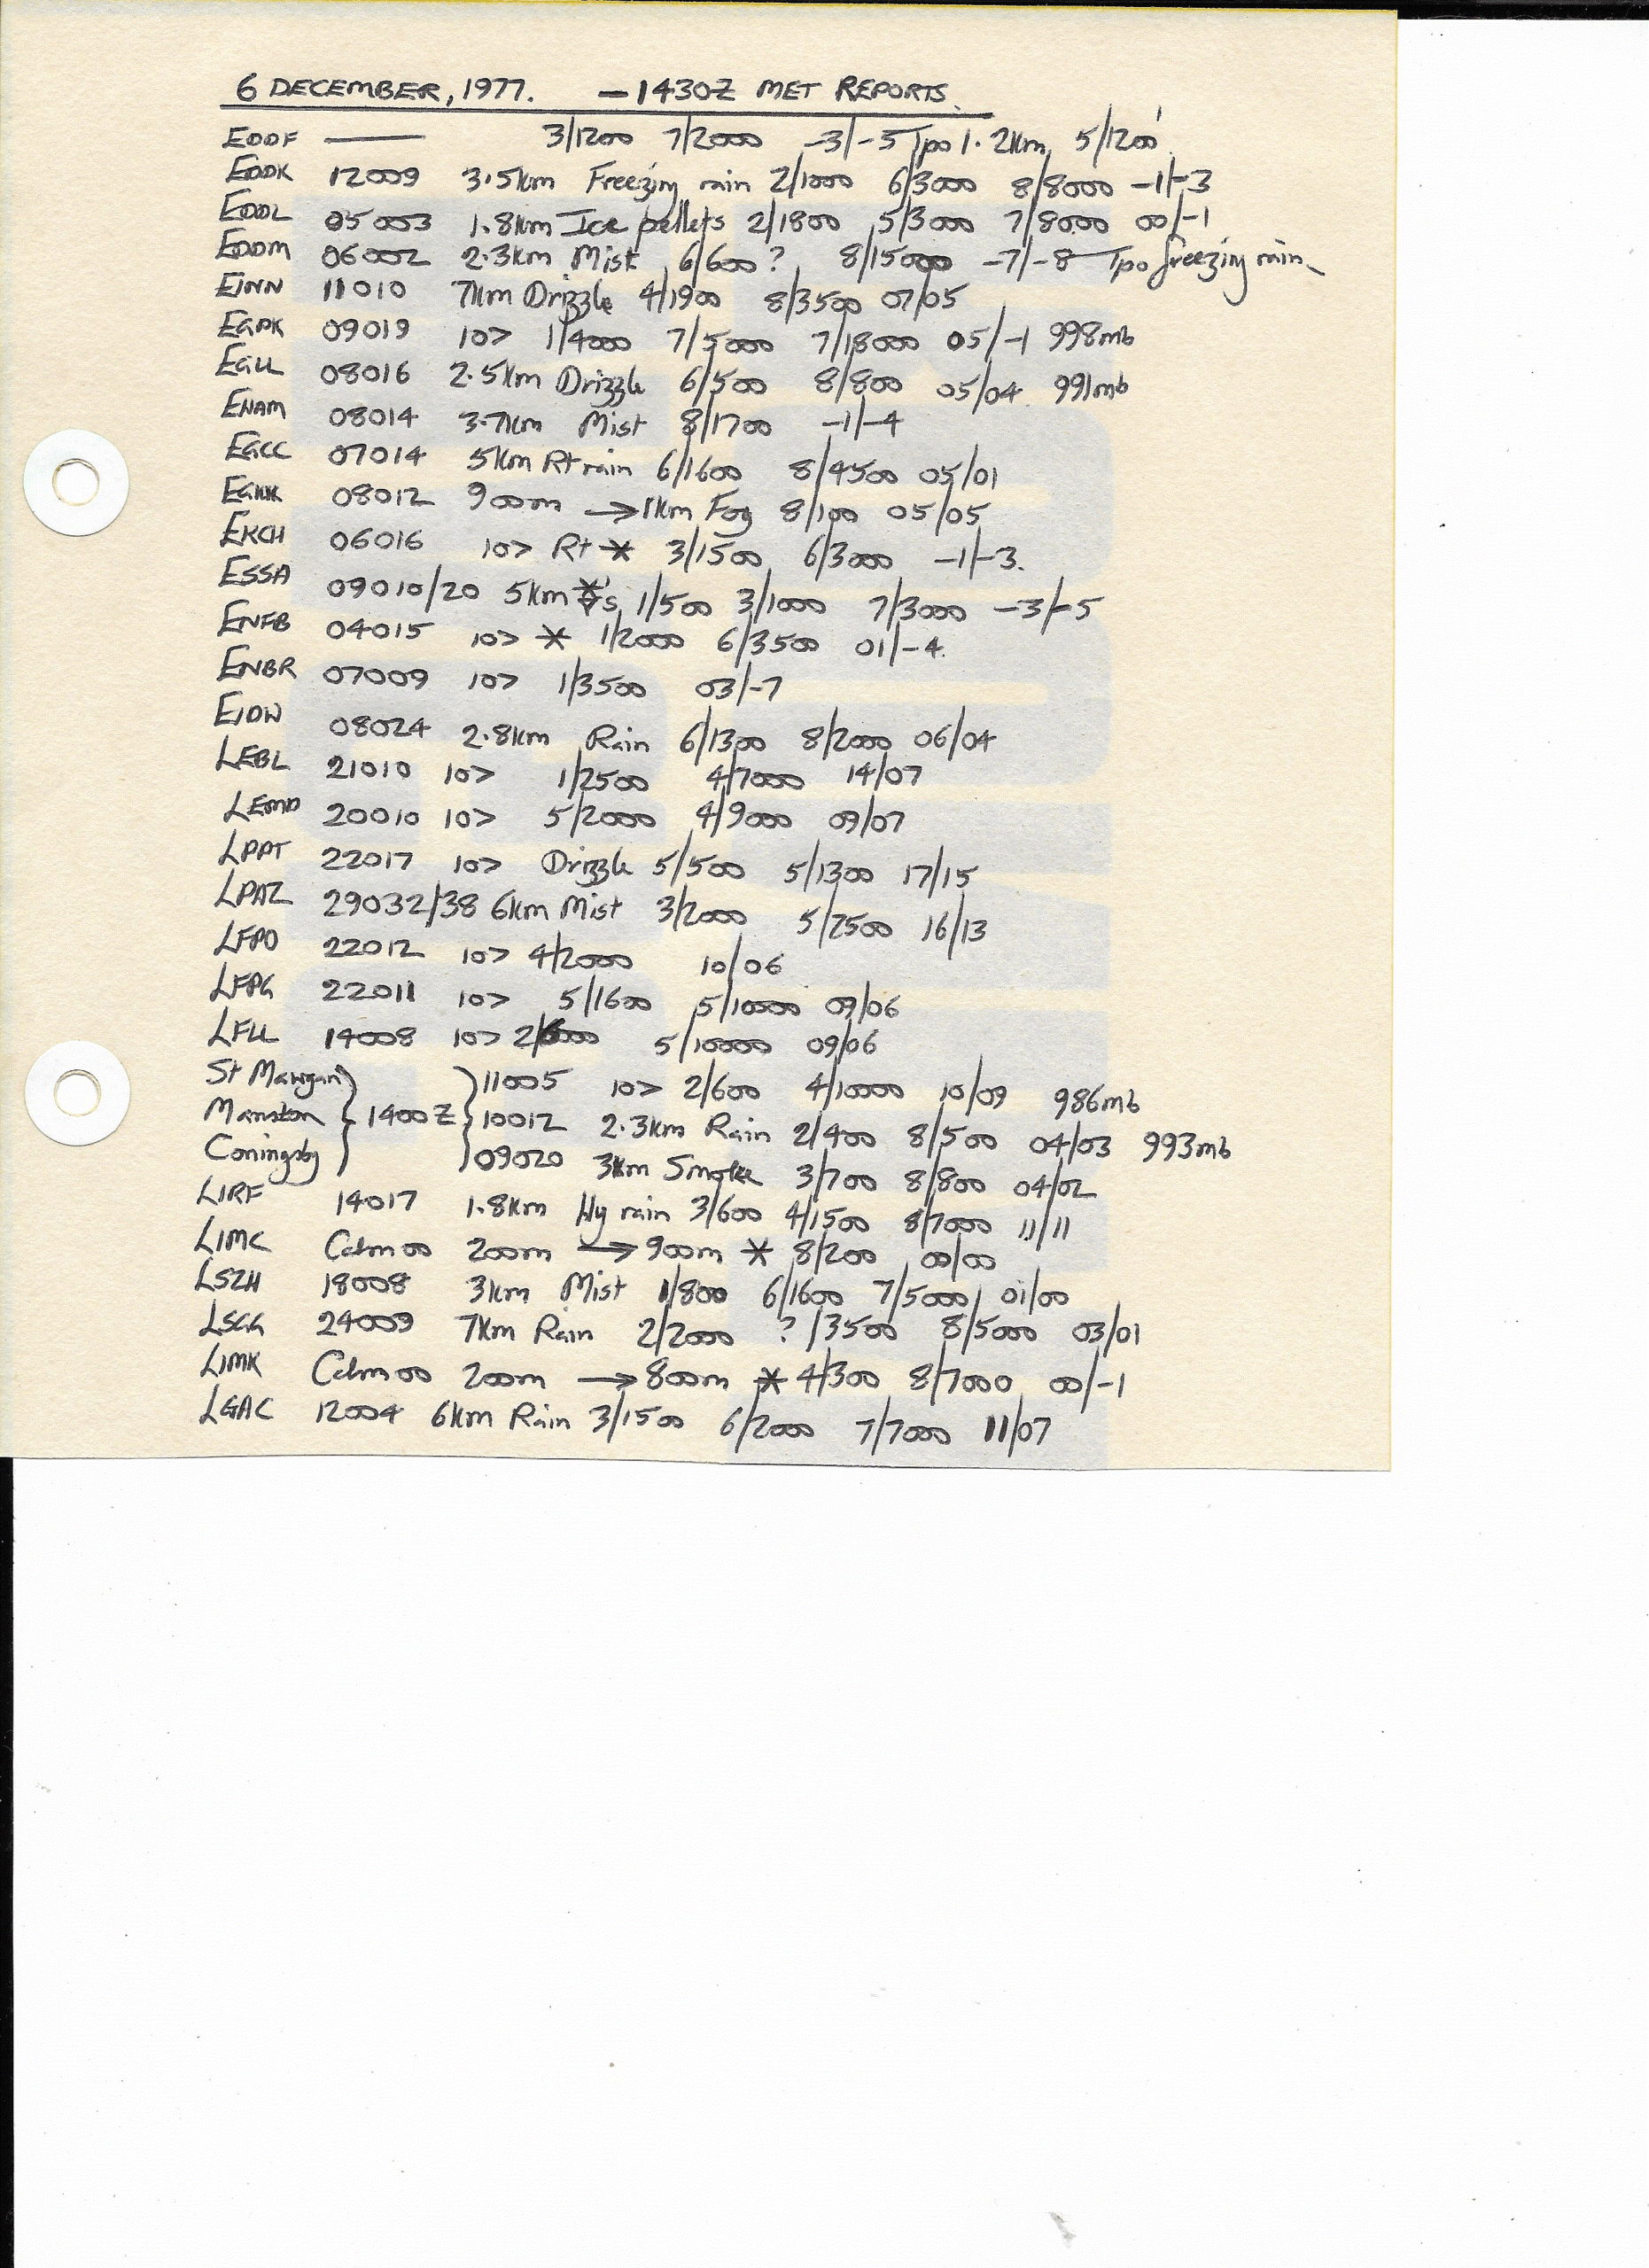 6 DECEMBER, 1977. — 1430Z MET REPORTS.
EDDF —— 3/1200 7/2000 -3/-5 Tpo 1.2km, 5/1200'
EDDK 12009 3.5km Freezing rain 2/1000 6/3000 8/8000 -1/-3
EDDL 05003 1.8km Ice pellets 2/1800 5/3000 7/8000 00/-1
EDDM 06002 2.3km Mist 6/600? 8/15000 -7/-8 Tpo freezing rain
EINN 11010 7km Drizzle 4/1900 8/3500 07/05
EGPK 09019 10> 1/4000 7/5000 7/18000 05/-1 998mb
EGLL 08016 2.5km Drizzle 6/500 8/800 05/04 991mb
EHAM 08014 3.7km Mist 8/1700 -1/-4
EGCC 07014 5km Rt rain 6/1600 8/4500 05/01
EGKK 08012 900m → 1km Fog 8/100 05/05
EKCH 06016 10> Rt * 3/1500 6/3000 -1/-3.
ESSA 09010/20 5km 's 1/500 3/1000 7/3000 -3/-5
ENFB 04015 10> * 1/2000 6/3500 01/-4.
ENBR 07009 10> 1/3500 03/-7
EIDW 08024 2.8km Rain 6/1300 8/2000 06/04
LEBL 21010 10> 1/2500 4/7000 14/07
LEMD 20010 10> 5/2000 4/9000 09/07
LPPT 22017 10> Drizzle 5/500 5/1300 17/15
LPAZ 29032/38 6km Mist 3/2000 5/2500 16/13
LFPO 22012 10> 4/2000 10/06
LFPG 22011 10> 5/1600 5/10000 09/06
LFLL 14008 10> 2/ 5/10000 09/06
St Mawgan 11005 10> 2/600 4/10000 10/09 986mb
Manston 1400Z 10012 2.3km Rain 2/400 8/500 04/03 993mb
Coningsby 09020 3km Smoke 3/700 8/800 04/02
LIRF 14017 1.8km Hy rain 3/600 4/1500 8/7000 11/11
LIMC Calm 00 200m → 900m * 8/200 00/00
LSZH 18008 3km Mist 1/800 6/1600 7/5000 01/00
LSGG 24009 7km Rain 2/2000 ?/3500 8/5000 03/01
LIMK Calm 00 200m → 800m * 4/300 8/7000 00/-1
LGAC 12004 6km Rain 3/1500 6/2000 7/7000 11/07